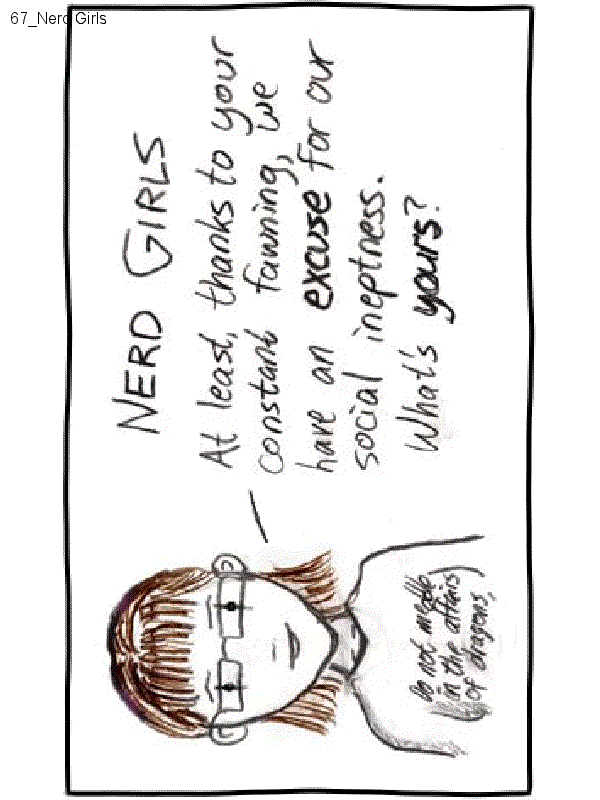 67_Nerd Girls
NERD GIRLS
At least, thanks to your
constant fawning, we
have an excuse for our
social ineptness.
What's yours?
Do not meddle
in the affairs
of dragons,